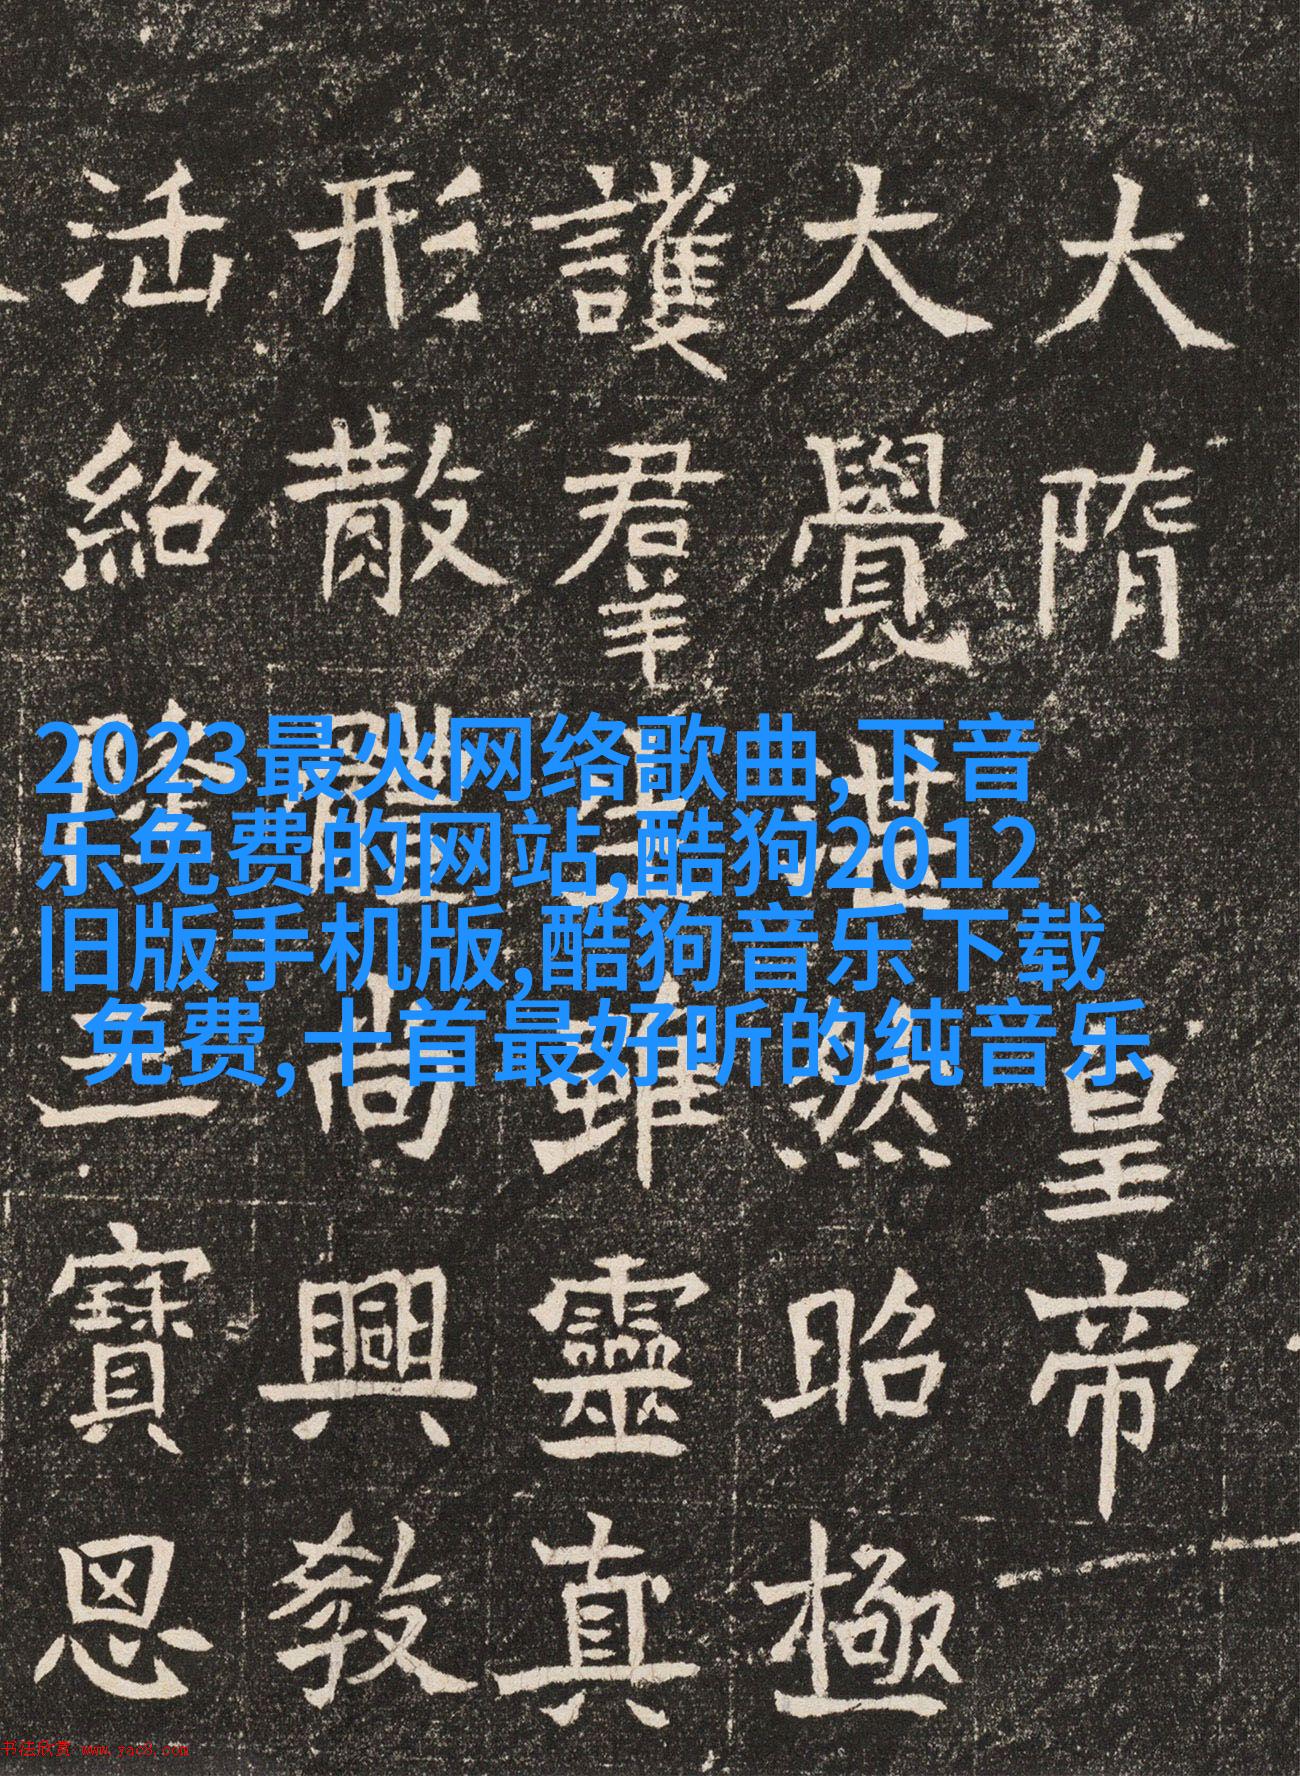 大隋皇帝
大覺湛然昭極
護羣生雖靈真
形散體尚興教
活紹隆三寶恩
2023最火网络歌曲,下音
乐免费的网站,酷狗2012
旧版手机版,酷狗音乐下载
免费,十首最好听的纯音乐
书法欣赏 www.yac8.com